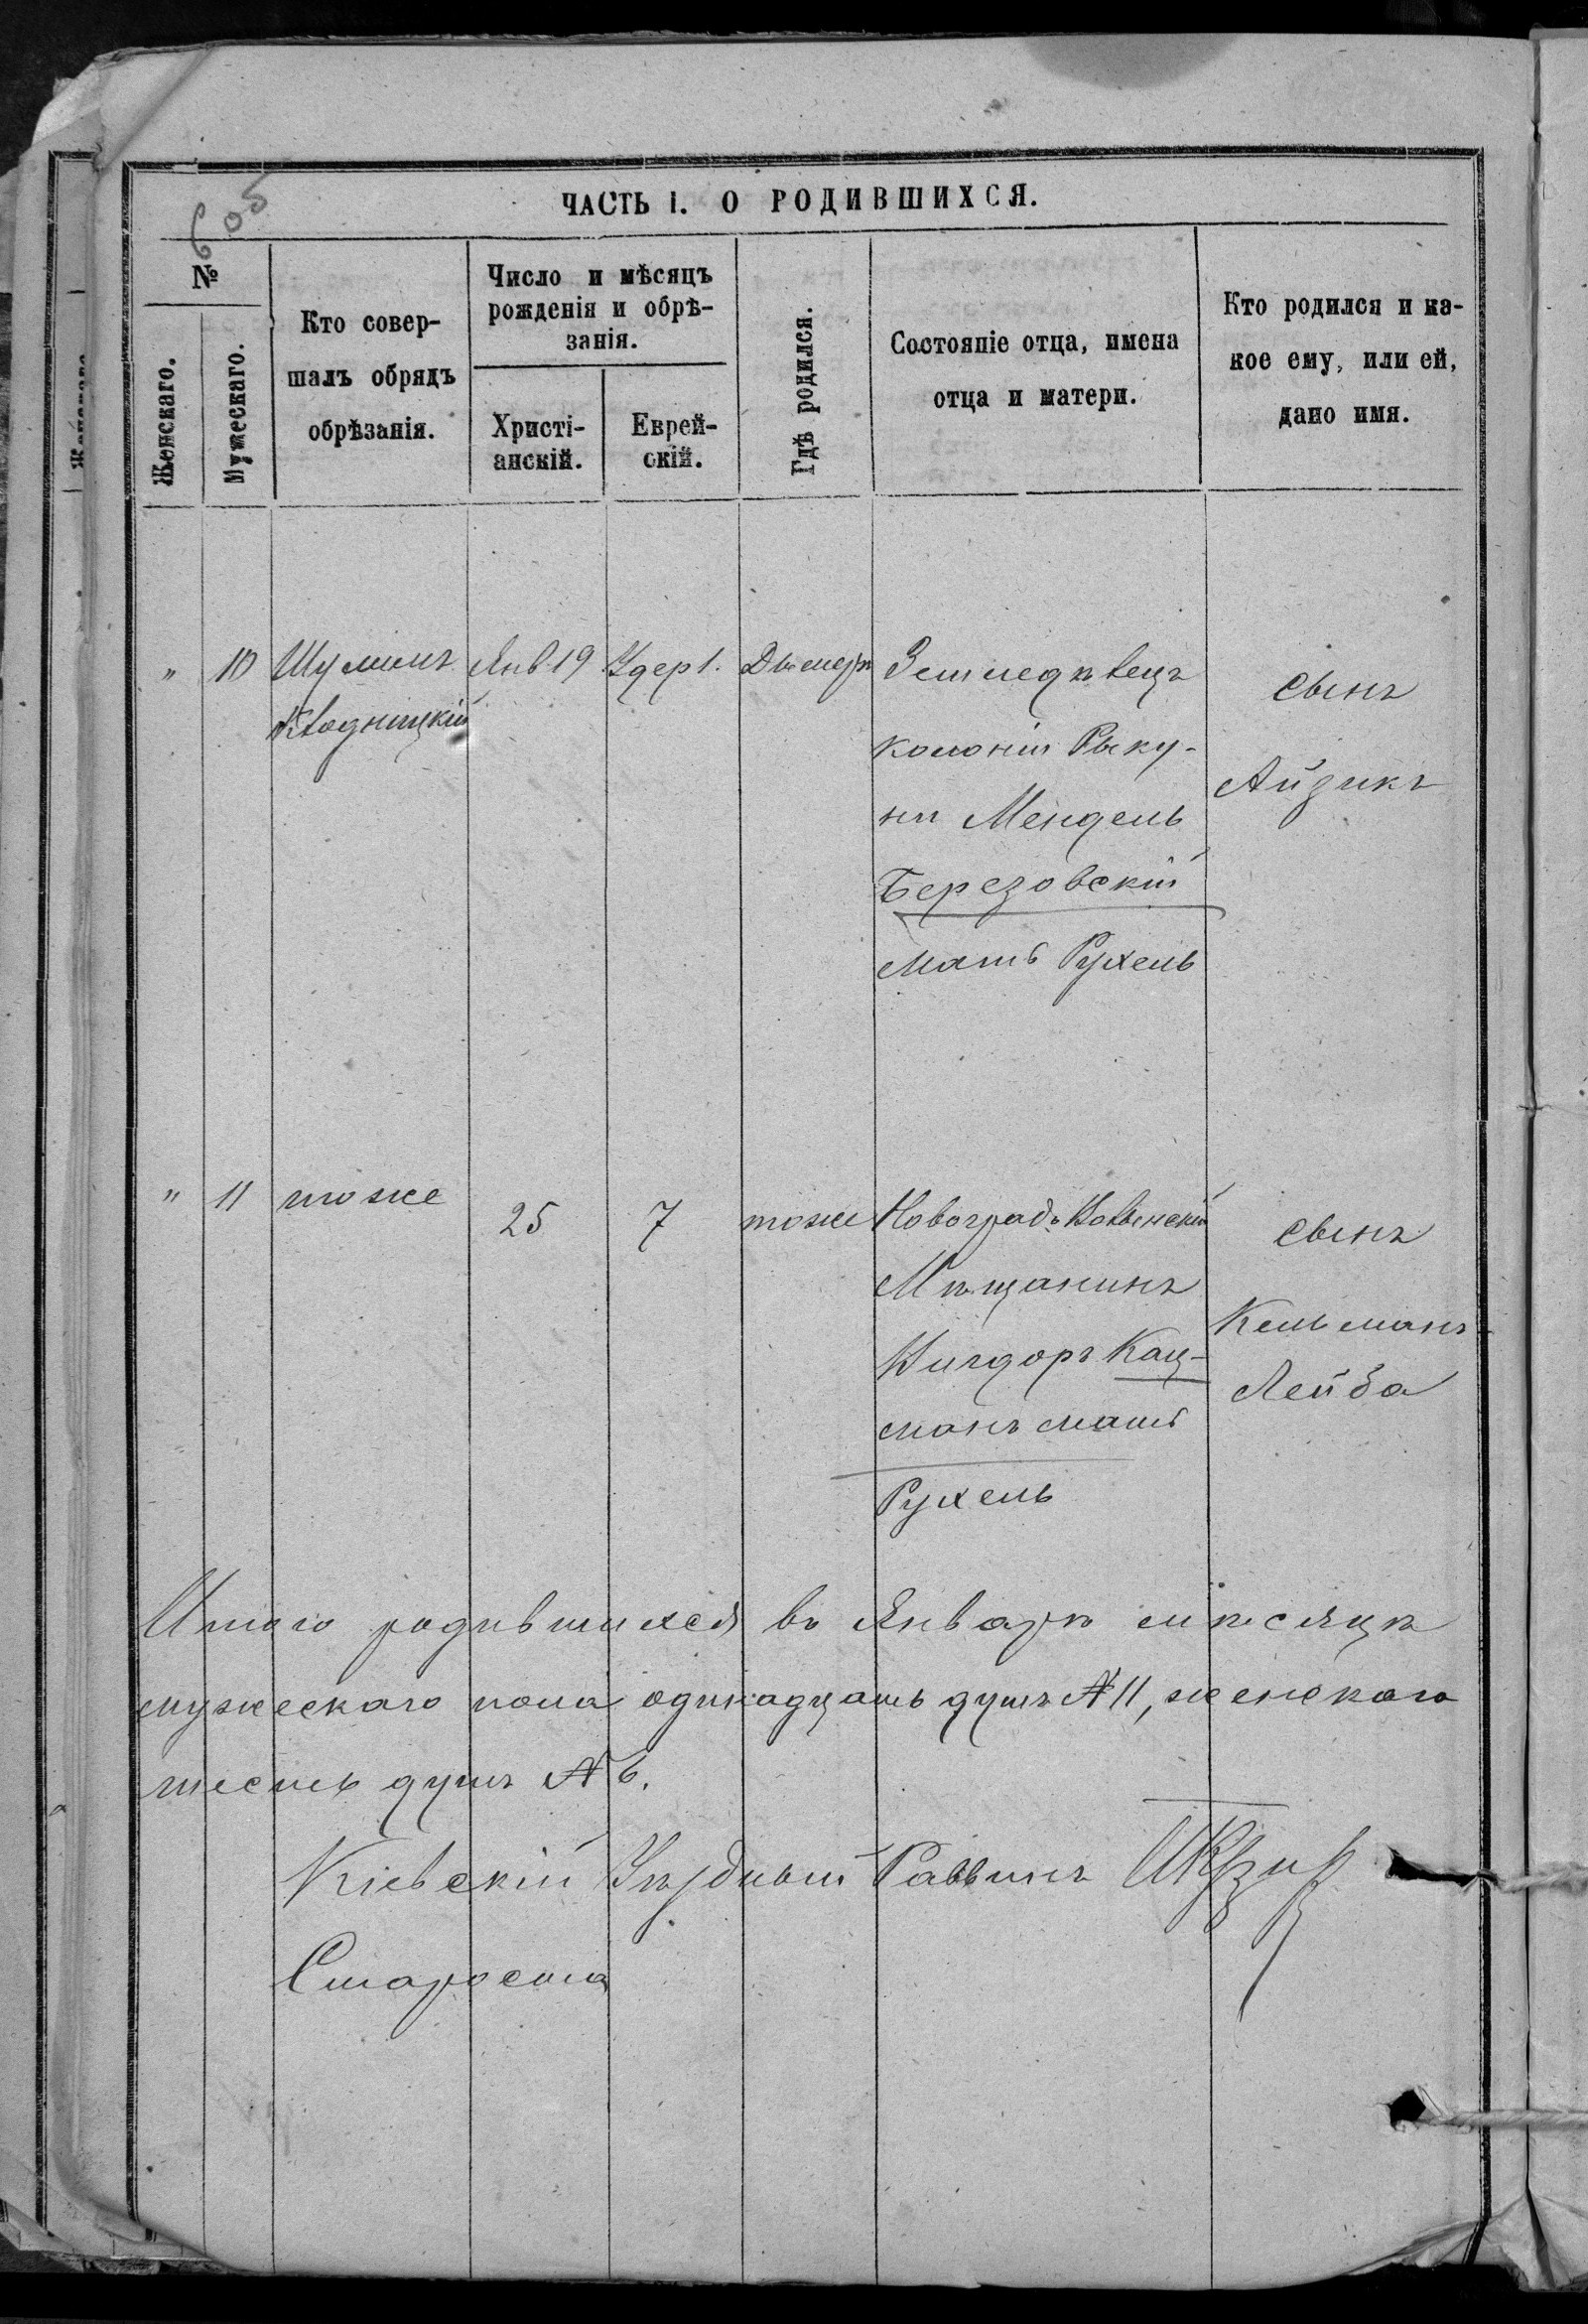 605
ЧАСТЬ I. О РОДИВШИХСЯ.
№
Женскаго.
Мужескаго.
Кто совер-
шалъ обрядъ
обрѣзанія.
Число и мѣсяцъ
рожденія и обрѣ-
занія.
Христі-
анскій.
Еврей-
скій.
Гдѣ родился.
Состояніе отца, имена
отца и матери.
Кто родился и ка-
кое ему, или ей,
дано имя.
" 10 Шулимъ Янв 19 Удер 1. Дымеръ Земледѣвецъ
колоніи Рыку-
ни Мендель
Березовскій
мать Рухель
сынъ
Айзикъ
" 11 тоже 25 7 тоже Новоградъ Волынскій
Мѣщанинъ
Вигдоръ Кац-
манъ мать
Рухель
сынъ
Кельманъ-
Лейба
Итого родившихся въ Январѣ мѣсяцѣ
мужескаго пола одинадцать душъ № 11, женскаго
шесть душъ № 6.
Кіевскій Уѣздный Раввинъ
Староста